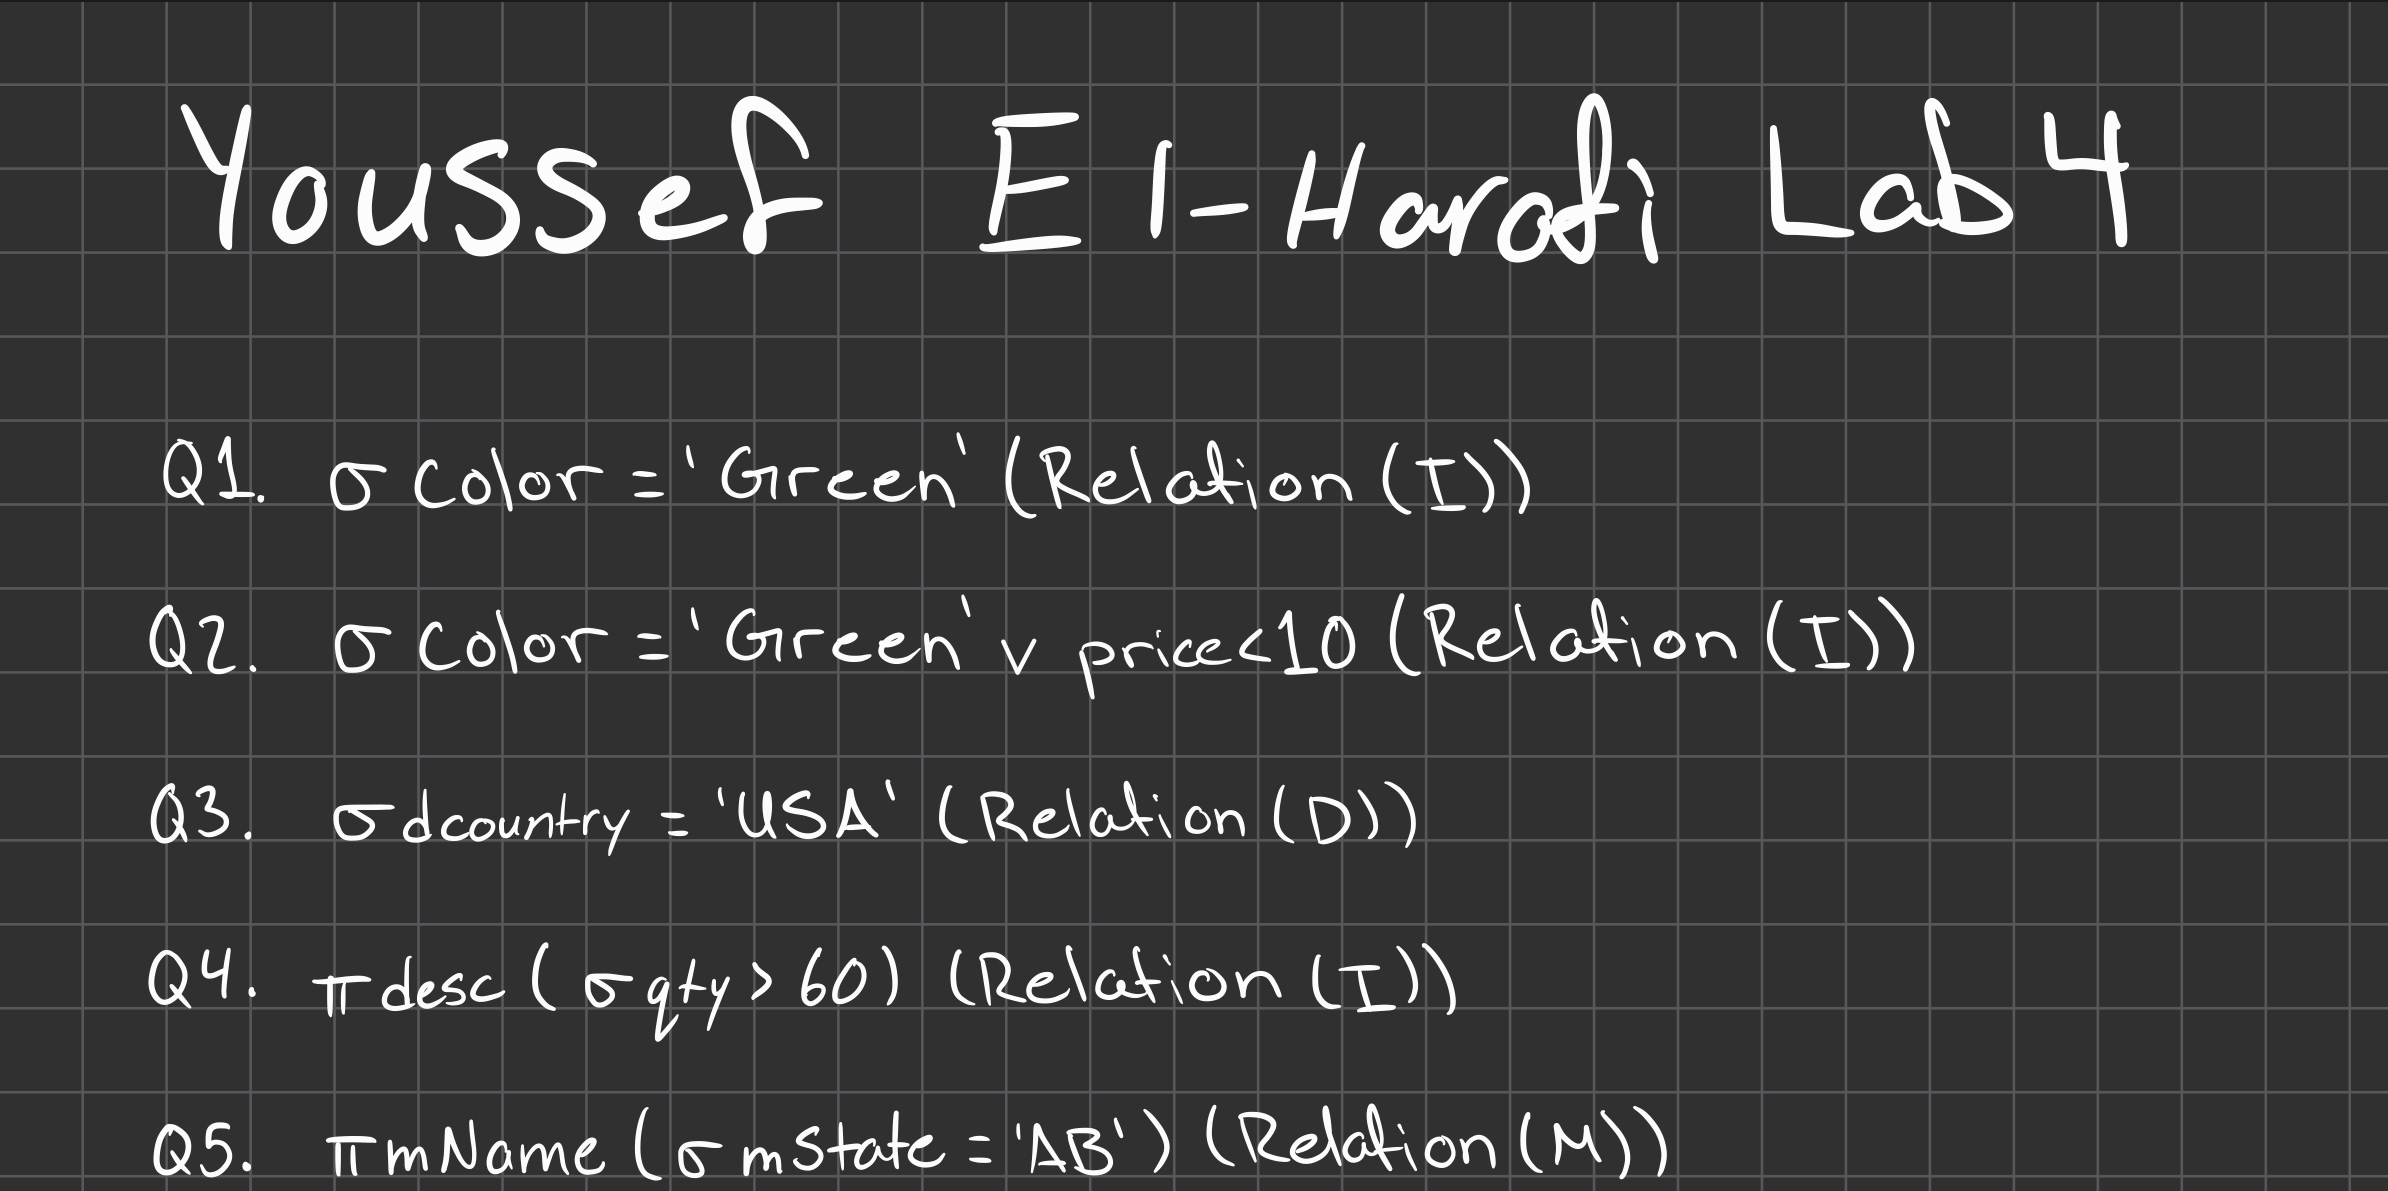 Youssef El-Harafi Lab 4
Q1. σ Color = 'Green' (Relation (I))
Q2. σ Color = 'Green' ∨ price<10 (Relation (I))
Q3. σ dcountry = 'USA' (Relation (D))
Q4. π desc (σ qty > 60) (Relation (I))
Q5. π mName (σ mState = 'AB') (Relation (M))